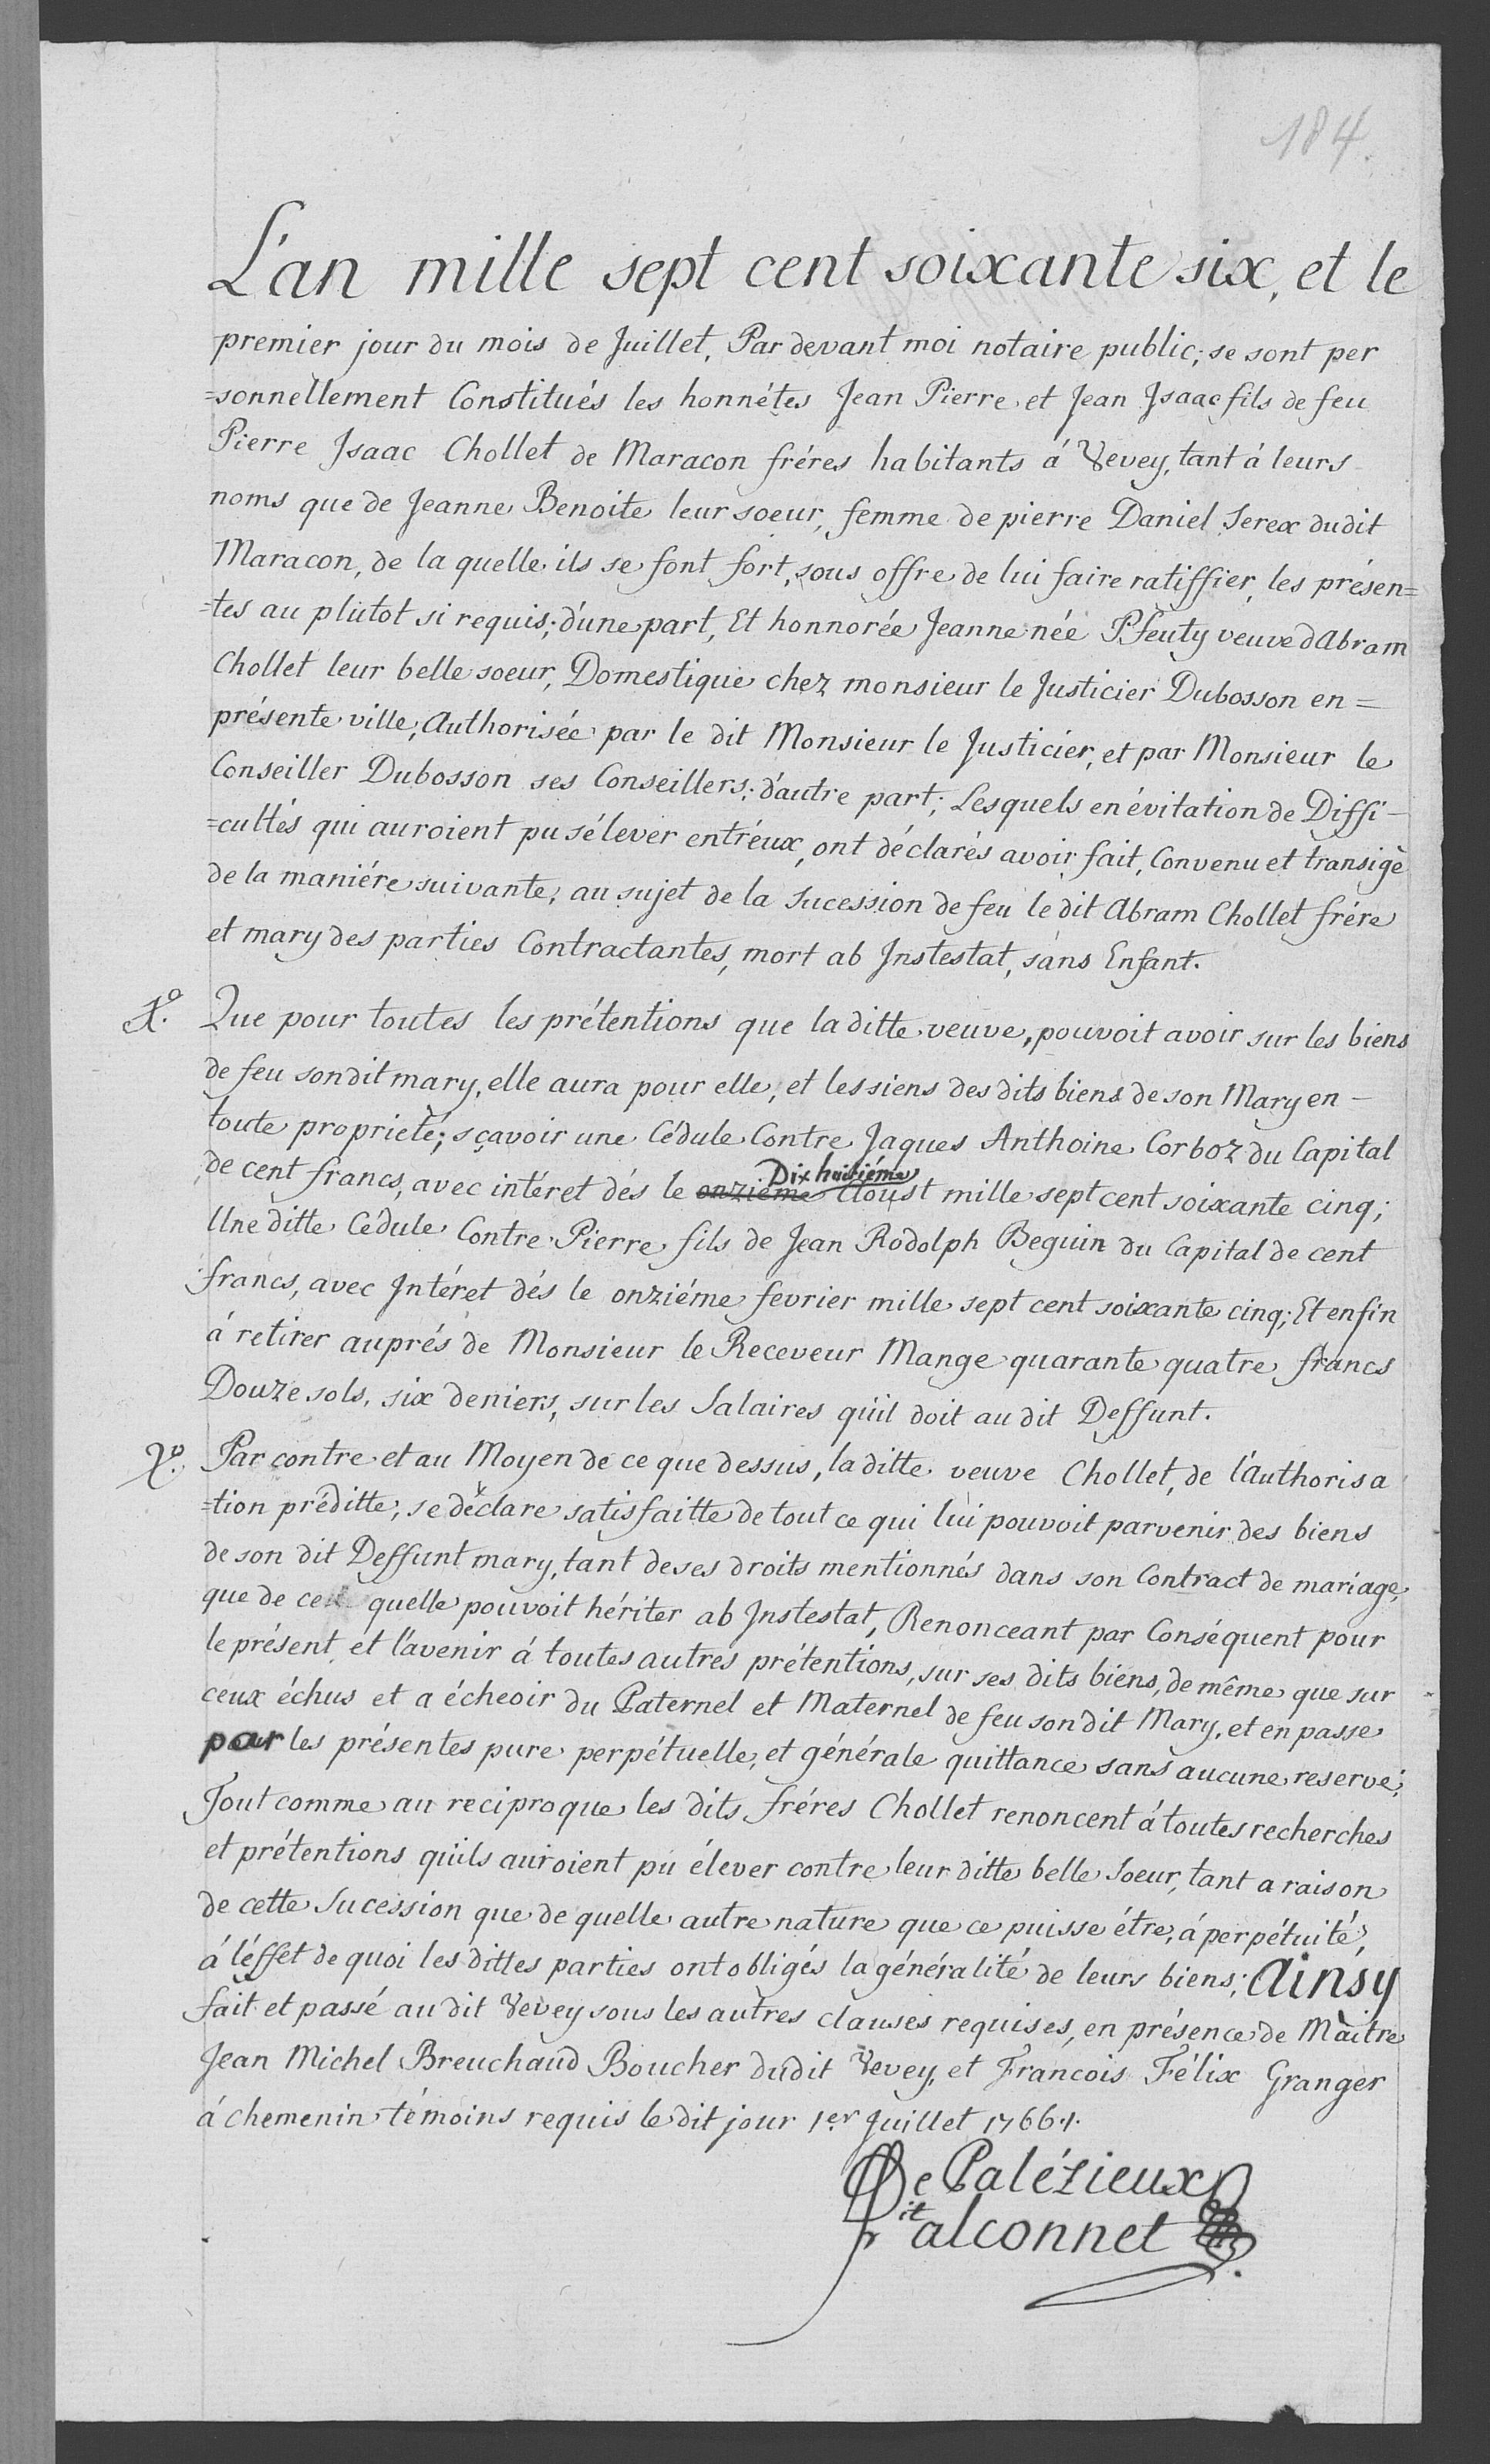 184.
L'an mille sept cent soixante six, et le
premier jour du mois de Juillet, Par devant moi notaire public; se sont per
=sonnellement Constitués les honnétes Jean Pierre et Jean Isaac fils de feu
Pierre Isaac Chollet de Maracon fréres habitants á Vevey, tant á leurs
noms que de Jeanne Benoite leur soeur, femme de pierre Daniel Serex dudit
Maracon, de la quelle ils se font fort, sous offre de lui faire ratiffier, les présen=
=tes au plutot si requis; d'une part, Et honnorée Jeanne née Pfeuty veuve d'Abram
Chollet leur belle soeur, Domestique chez monsieur le Justicier Dubosson en=
présente ville; Authorisée par le dit Monsieur le Justicier, et par Monsieur le
Conseiller Dubosson ses Conseillers; d'autre part; Lesquels en évitation de Diffi-
=cultés qui auroient pu s'élever entr'eux, ont déclarés avoir fait, Convenu et transigé
de la maniére suivante, au sujet de la Sucession de feu le dit Abram Chollet frére
et mary des parties Contractantes, mort ab Instestat, sans Enfant.
1.o Que pour toutes les prétentions que la ditte veuve, pouvoit avoir sur les biens
de feu sondit mary, elle aura pour elle, et les siens des dits biens de son Mary en-
toute proprieté; sçavoir une Cédule Contre Jaques Anthoine Corboz du Capital
de cent francs, avec intéret dés le onziéme Dix huitiéme Aoust mille sept cent soixante cinq;
Une ditte Cédule Contre Pierre fils de Jean Rodolph Beguin du Capital de cent
francs, avec Intéret dés le onziéme fevrier mille sept cent soixante cinq; Et enfin
á retirer auprés de Monsieur le Receveur Mange quarante quatre francs
Douze sols, six deniers, sur les Salaires qu'il doit au dit Deffunt.
2.o Par contre et au Moyen de ce que dessus, la ditte veuve Chollet, de l'Authorisa
=tion préditte, se déclare satisfaitte de tout ce qui lui pouvoit parvenir des biens
de son dit Deffunt mary, tant de ses droits mentionnés dans son Contract de mariage,
que de ce quelle pouvoit hériter ab Instestat, Renonceant par Conséquent pour
le présent, et l'avenir á toutes autres prétentions, sur ses dits biens, de même que sur
ceux échus et a écheoir du Paternel et Maternel de feu son dit Mary, et en passe
par les présentes pure perpétuelle, et générale quittance sans aucune reserve;
Tout comme au reciproque les dits fréres Chollet renoncent á toutes recherches
et prétentions qu'ils auroient pu élever contre leur ditte belle Soeur, tant a raison
de cette Sucession que de quelle autre nature que ce puisse étre, á perpétuité,
á l'éffet de quoi les dittes parties ont obligés la généralité de leurs biens; Ainsy
fait et passé au dit Vevey sous les autres clauses requises, en présence de Maitre
Jean Michel Breuchaud Boucher dudit Vevey, et Francois Félix Granger
á chemenin témoins requis le dit jour 1.er Juillet 1766.
De Palézieux
dit
falconnet